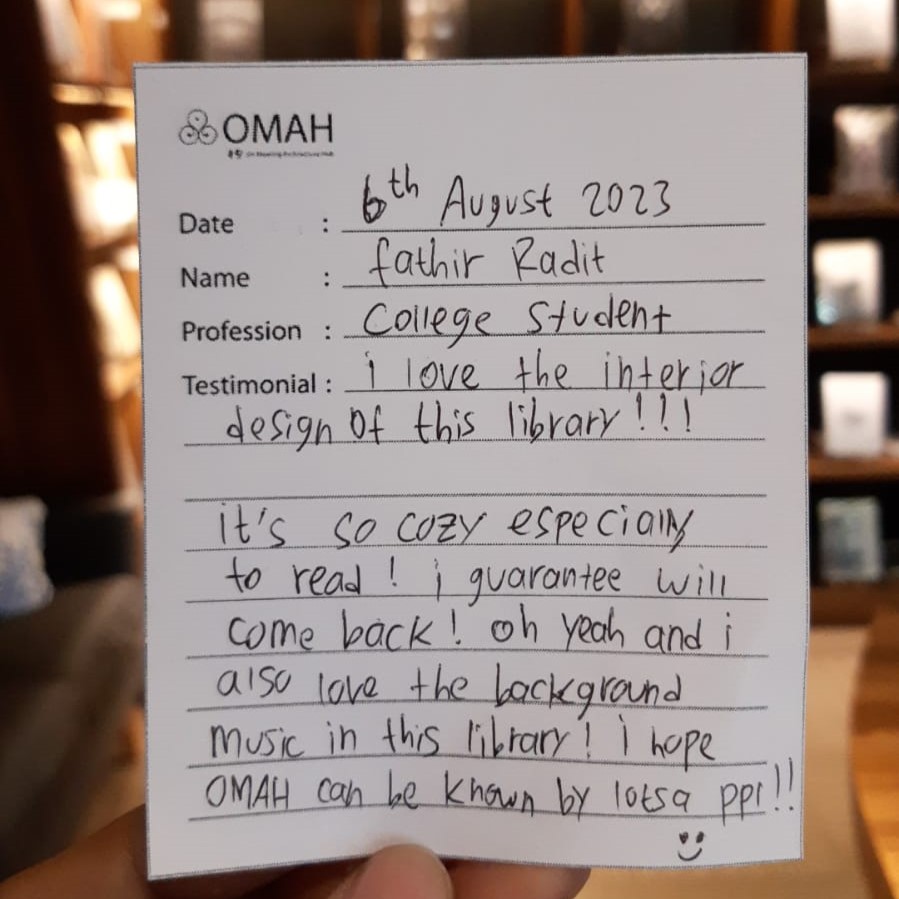 OMAH
Date : 6th August 2023
Name : fathir Radit
Profession : College Student
Testimonial : i love the interior
design of this library!!!
it's so cozy especially
to read! i guarantee will
come back! oh yeah and i
also love the background
music in this library! i hope
OMAH can be known by lotsa ppl!!